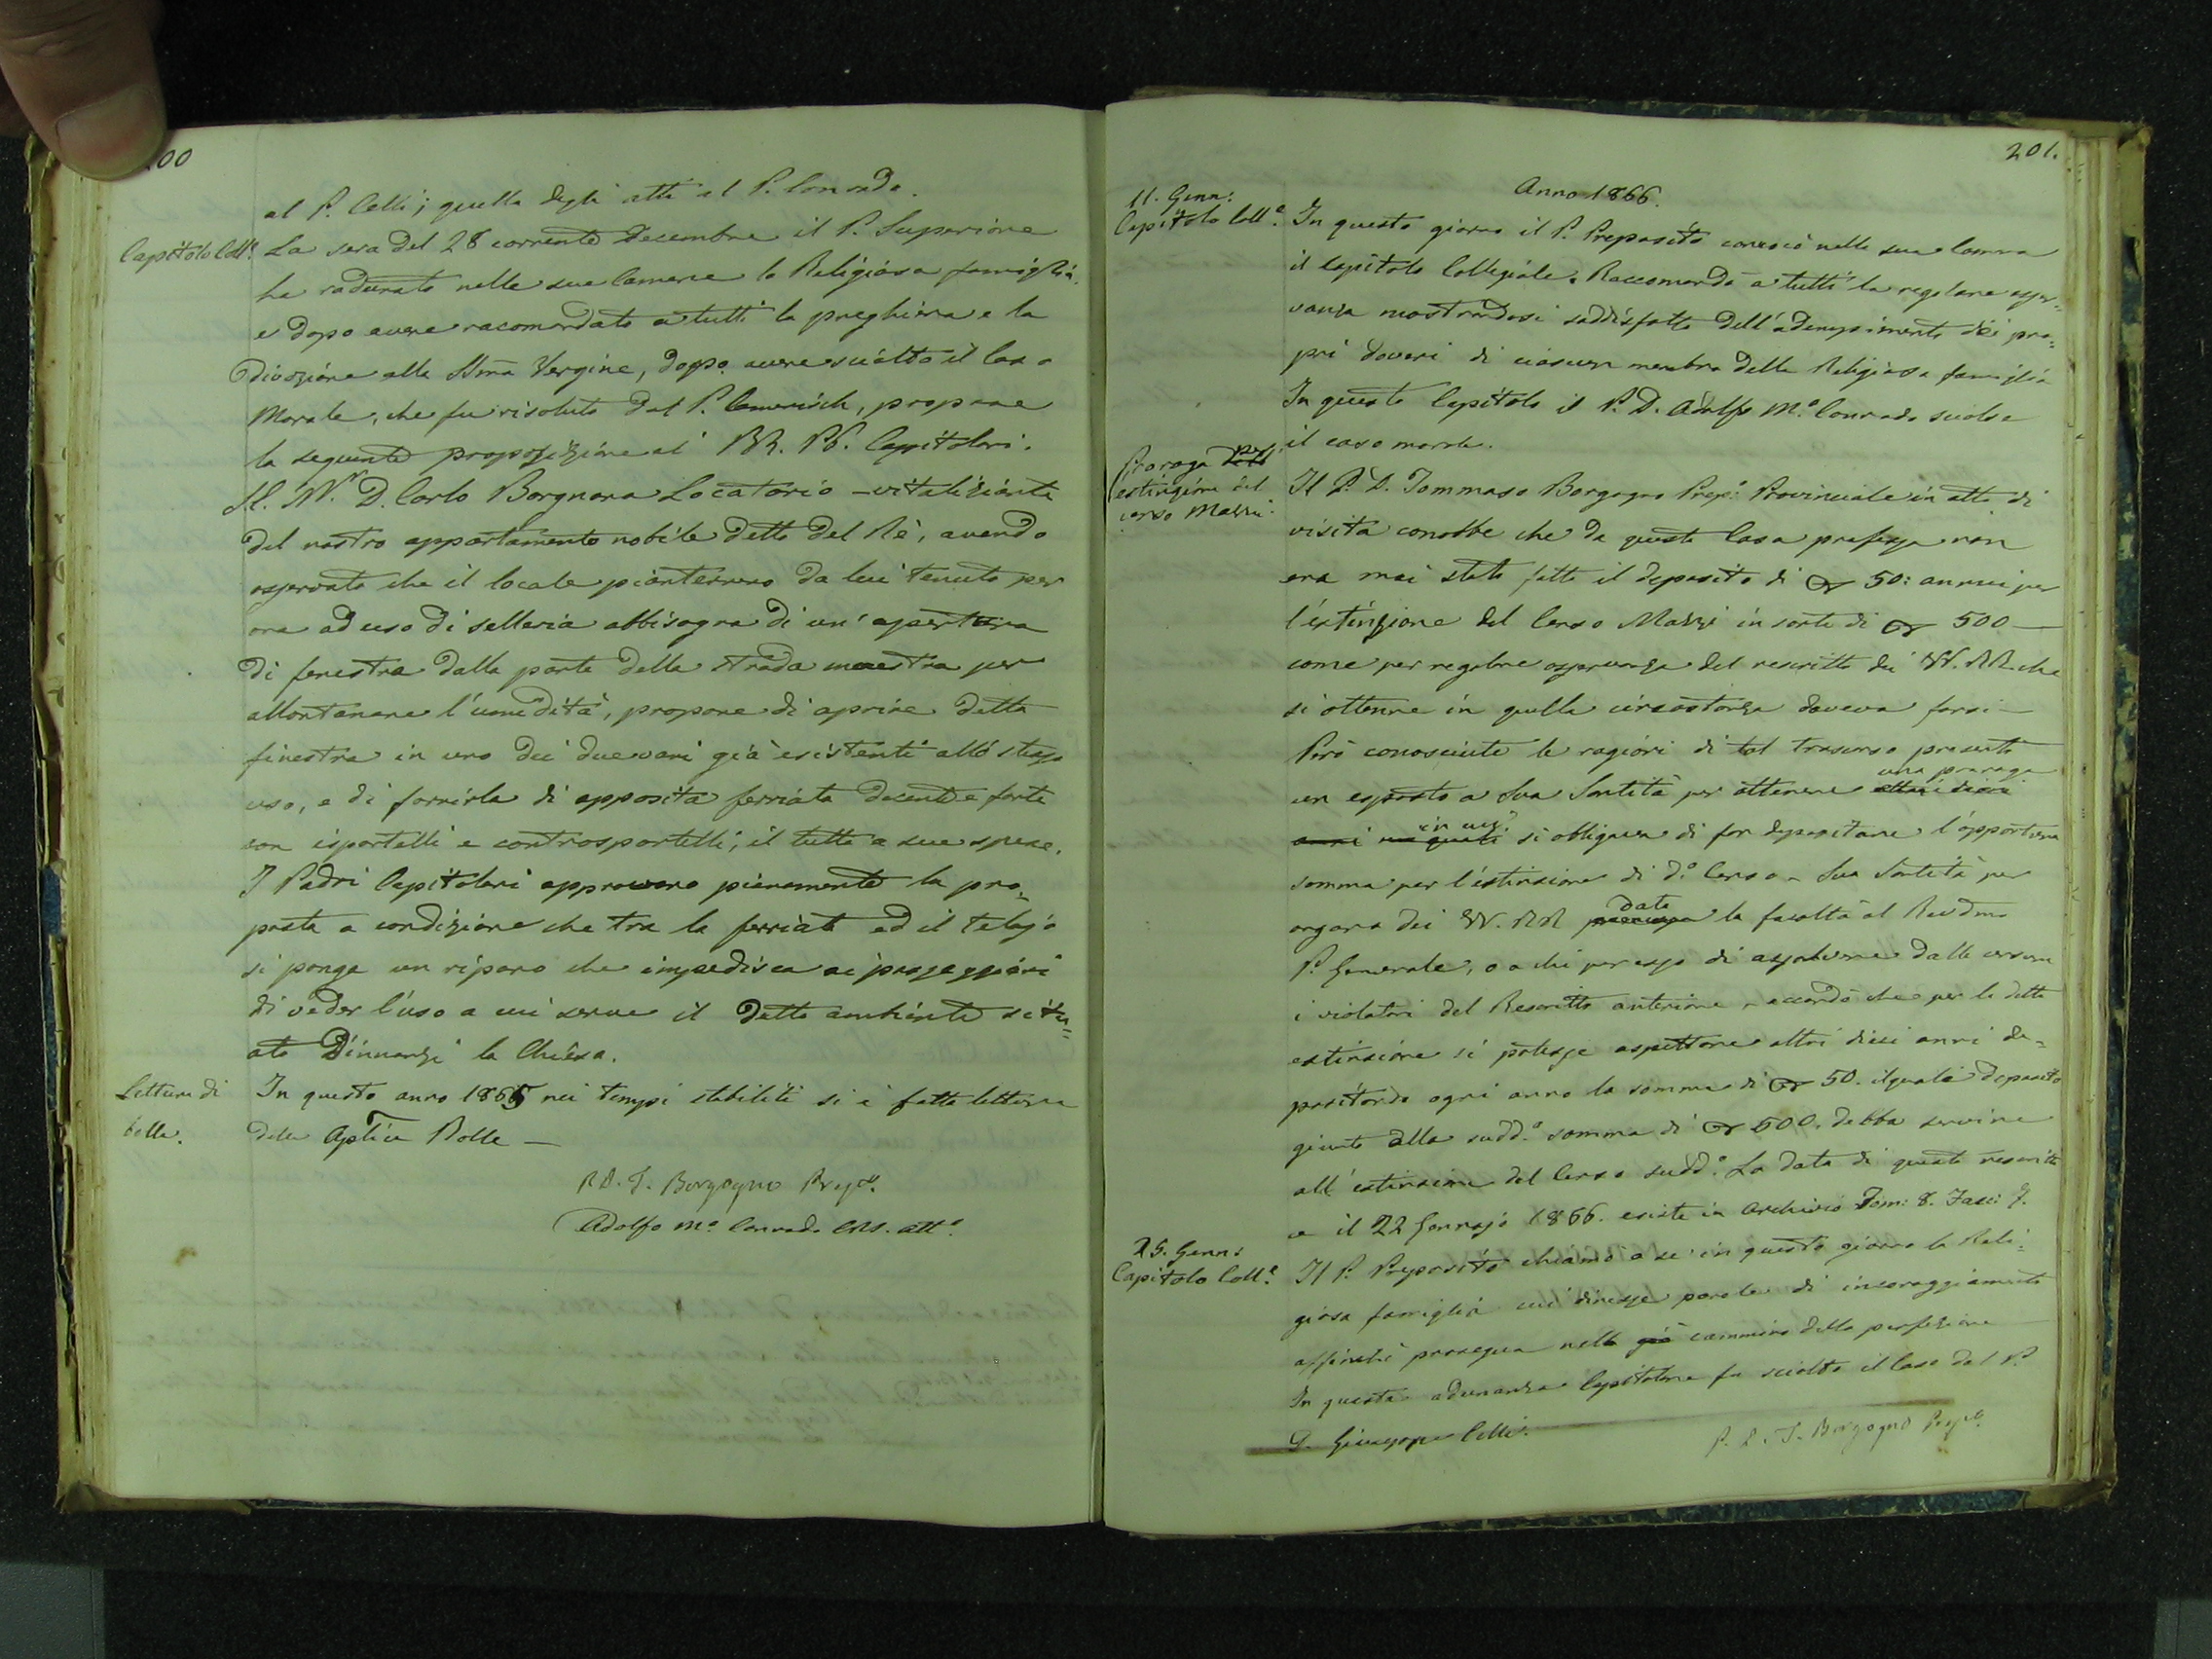 200
al P. Celli; quella degli atti al P. Conrado.
Capitolo Coll.e La sera del 28 corrente Decembre il P. Superiore
ha radunato nelle sue Camere la Religiosa famiglia,
e dopo avere racomandato a tutti la preghiera e la
divozione alla SSma Vergine, dopo avere sciolto il Caso
Morale, che fu risoluto dal P. Camerisch, propone
la seguente proposizione ai RR. PP. Capitolari.
Il N. D. Carlo Borgnana Locatario - vitaliziante
del nostro appartamento nobile detto del Rè, avendo
osservato che il locale pianterreno da lui tenuto per
ora ad uso di selleria abbisogna di un'apertura
di fenestra dalla parte della strada maestra per
allontanare l'umidità, propone di aprire detta
finestra in uno dei due vani già esistenti allo stesso
uso, e di fornirla di apposita ferriata decente e forte
con isportelli e controsportelli, il tutto a sue spese.
I Padri Capitolari approvano pienamente la pro-
posta a condizione che tra la ferriata ed il telajo
si ponga un riparo che impedisca ai passeggiari
di veder l'uso a cui serve il detto ambiente situ-
ato Dinnanzi la Chiesa.
Lettura di bolle. In questo anno 1865 nei tempi stabiliti si è fatta lettura
delle Aplice Bolle —
P. D. T. Borgogno Prep.o
Adolfo M.a Conrado CRS. att.o
201.
Anno 1866.
11. Genn:
Capitolo Coll.e In questo giorno il P. Preposito convocò nella sua Camera
il Capitolo Collegiale. Raccomandò a tutti la regolare osser-
vanza mostrandosi soddisfatto dell'adempimento dei pro-
pri doveri di ciascun membro della Religiosa famiglia
In questo Capitolo il P. D. Adolfo M.a Conrado sciolse
il caso morale.
Proroga per
estinzione del
censo Mazzi.
Il P. D. Tommaso Borgogno Prep: Provinciale in atto di
visita conobbe che da questa Casa professa non
era mai stato fatto il deposito di 50: annui per
l'estinzione del Censo Mazzi in sorte di 500 —
come per regolare osservanza del rescritto dei VV. RR. che
si ottenne in quella circostanza doveva farsi —
Però conosciute le ragioni di tal trascurso presentò
un esposto a Sua Santità per ottenere una proroga
si obbligava di far depositare l'opportuna
somma per l'estinzione di d.o Censo - Sua Santità per
organo dei VV. RR data la facoltà al Revdmo
P. Generale, o a chi per esso di assolvere dalle censure
i violatori del Rescritto anteriore, accordò che per la detta
estinzione si potesse aspettare altri dieci anni de-
positando ogni anno la somma di 50. il quale deposito
giunto alla sudd.a somma di 500. debba servire
all'estinzione del Censo sudd.o La data di questo rescritto
e il 22 Gennajo 1866. esiste in Archivio Tom: 8. Fasc: 7.
25. Genn:
Capitolo Coll.e Il P. Preposito chiamò a se in questo giorno la Reli-
giosa famiglia cui diresse parole di incoraggiamento
affinchè prosegua nella già cammino della perfezione
In questa adunanza Capitolare fu sciolto il Caso dal P.
D. Giuseppe Celli.
P. D. T. Borgogno Prep.o